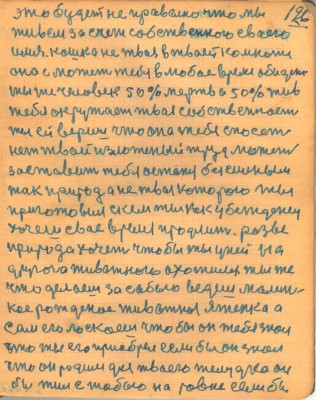 126
это будет не правельно что мы
живем за счет собственного своего
имя. кошка не твая в твоей комноти
она может тебя в любое время обидеть
ты же человек 50% мертв а 50% жив
тебя окружает твая собственност
ты ей вериш что она тебя спосет
нет твой изложеный труд может
заставить тебя остатся безсильным
так природа не твая которого ты
приготовил с кем ты как убежденец
хочеш свае время продлить. разве
природа хочет чтобы ты у ней на
другога животного охотился ты же
что делаеш за собою ведеш малин-
кое рожденое животныя ягненка а
сам его ласкаеш чтобы он тебя знал
что ты его приобрел если бы он знал
что он родился для твоего желудка он
бы жил с тобою на ровне если бы